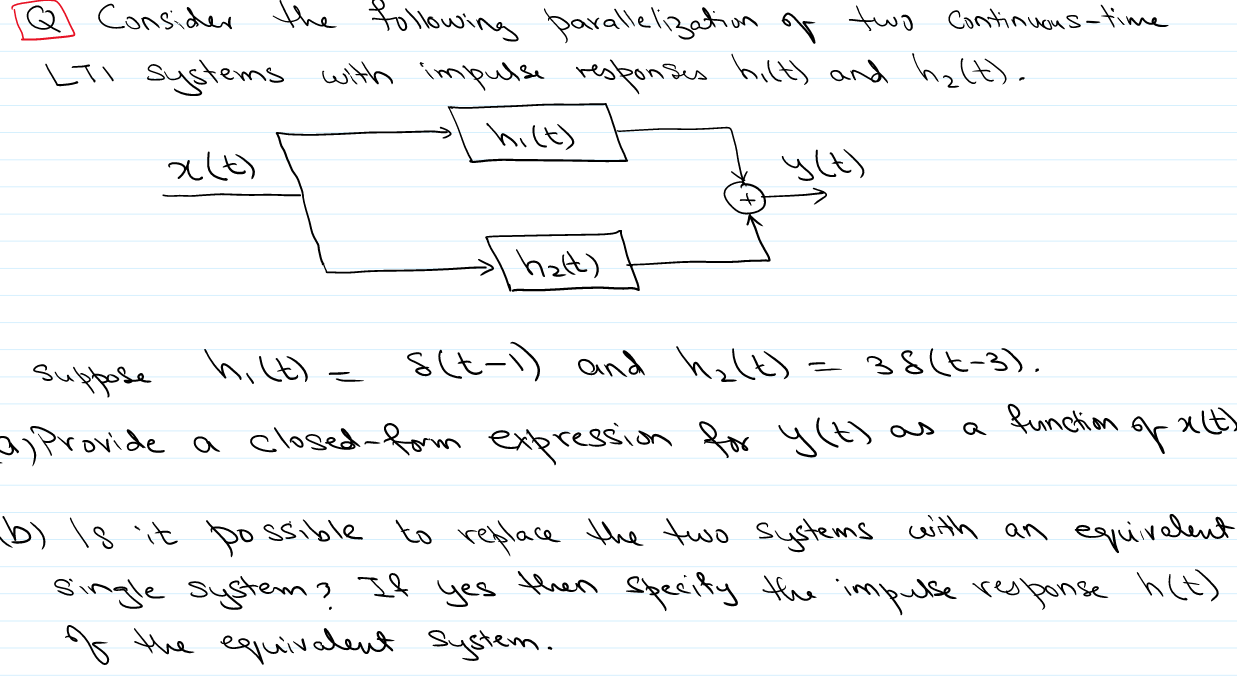 Q Consider the following parallelization of two Continuous-time
LTI systems with impulse responses h₁(t) and h₂(t).
h₁(t)
x(t)
y(t)
+
h₂(t)
suppose h₁(t) = δ(t-1) and h₂(t) = 3δ(t-3).
a) Provide a closed-form expression for y(t) as a function of x(t)
(b) Is it possible to replace the two systems with an equivalent
single system? If yes then specify the impulse response h(t)
of the equivalent system.